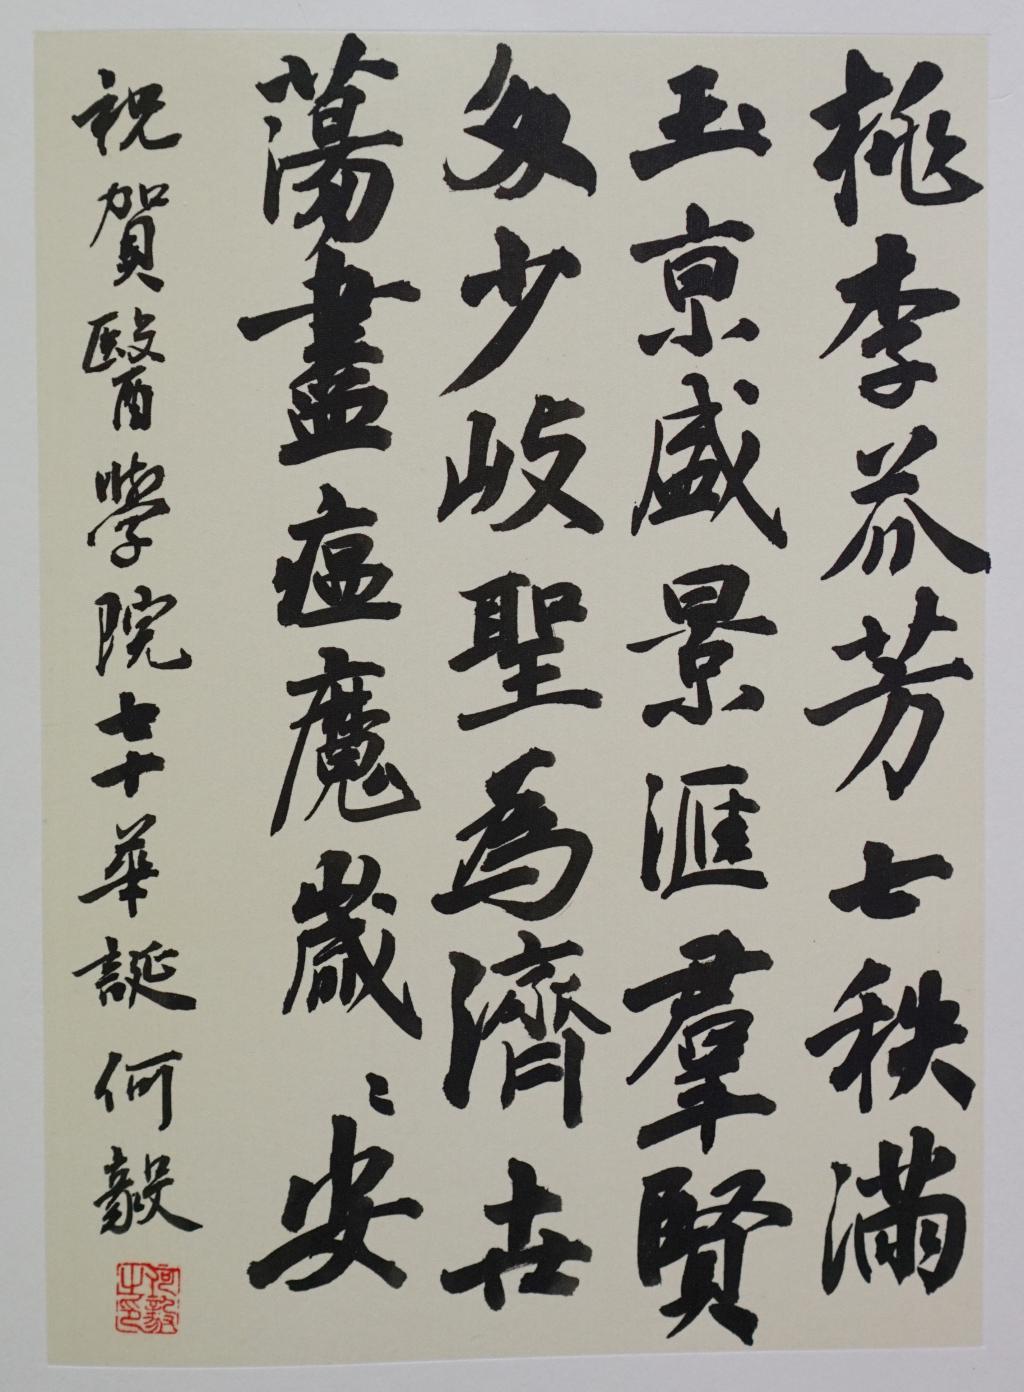 桃李芬芳七秩滿
玉京盛景匯羣賢
多少岐聖為濟世
蕩盡瘟魔歲〻安
祝賀醫學院七十華誕 何毅
何毅之印